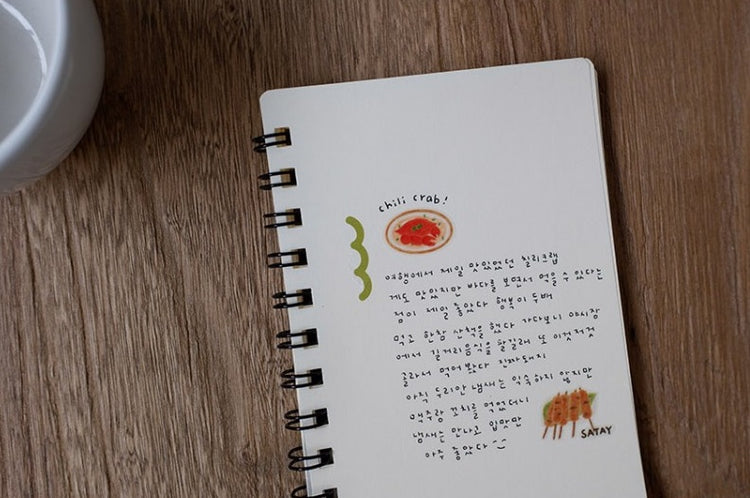 chili crab!
여행에서 제일 맛있었던 칠리크랩
게도 맛있지만 바다를 보면서 먹을 수 있다는
점이 제일 좋았다 행복이 두배
먹고 한참 산책을 했다 가다보니 야시장
에서 길거리음식을 팔길래 또 이것저것
골라서 먹어봤다 진짜돼지
아직 두리안 냄새는 익숙하지 않지만
맥주랑 꼬치를 먹었더니
냄새는 안나고 입맛만
아주 좋았다
SATAY